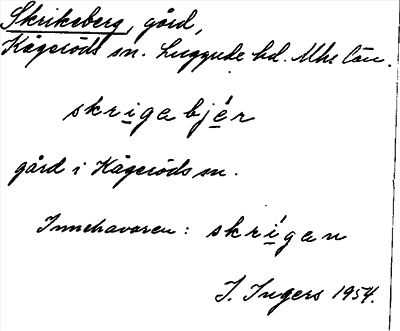 Skrikeberg, gård,
Kågeröds sn. Luggude hd. Mhs län.
skrigabjér
gård i Kågeröds sn.
Innehavaren: skrígan
I. Ingers 1954.